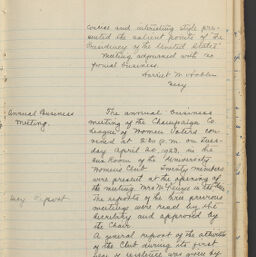 concise and interesting style pre-
sented the salient points of "The
Presidency of the United States"
Meeting adjourned with no
formal business.
Harriet M.
Secy
Annual Business
Meeting.
The annual business
meeting of the Champaign Co
League of Women Voters con
vened at 2:30 P.M. on Tues-
day April 24, 1923, in the
Sun Room of the University
Woman's Club. Twenty members
were present at the opening of
the meeting. Mrs in the Chair.
Secy Report
The reports of the three previous
meetings were read by the
Secretary and approved by
the Chair.
A general report of the activities
of the Club during its first
year of existence was given by